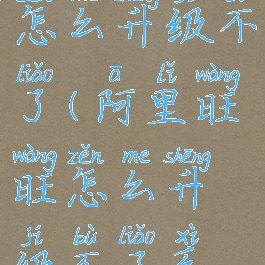 怎么升级不
liǎo ā lǐ wàng
了(阿里旺
wàng zěn me shēng
旺怎么升
jí bù liǎo xì
级不了系